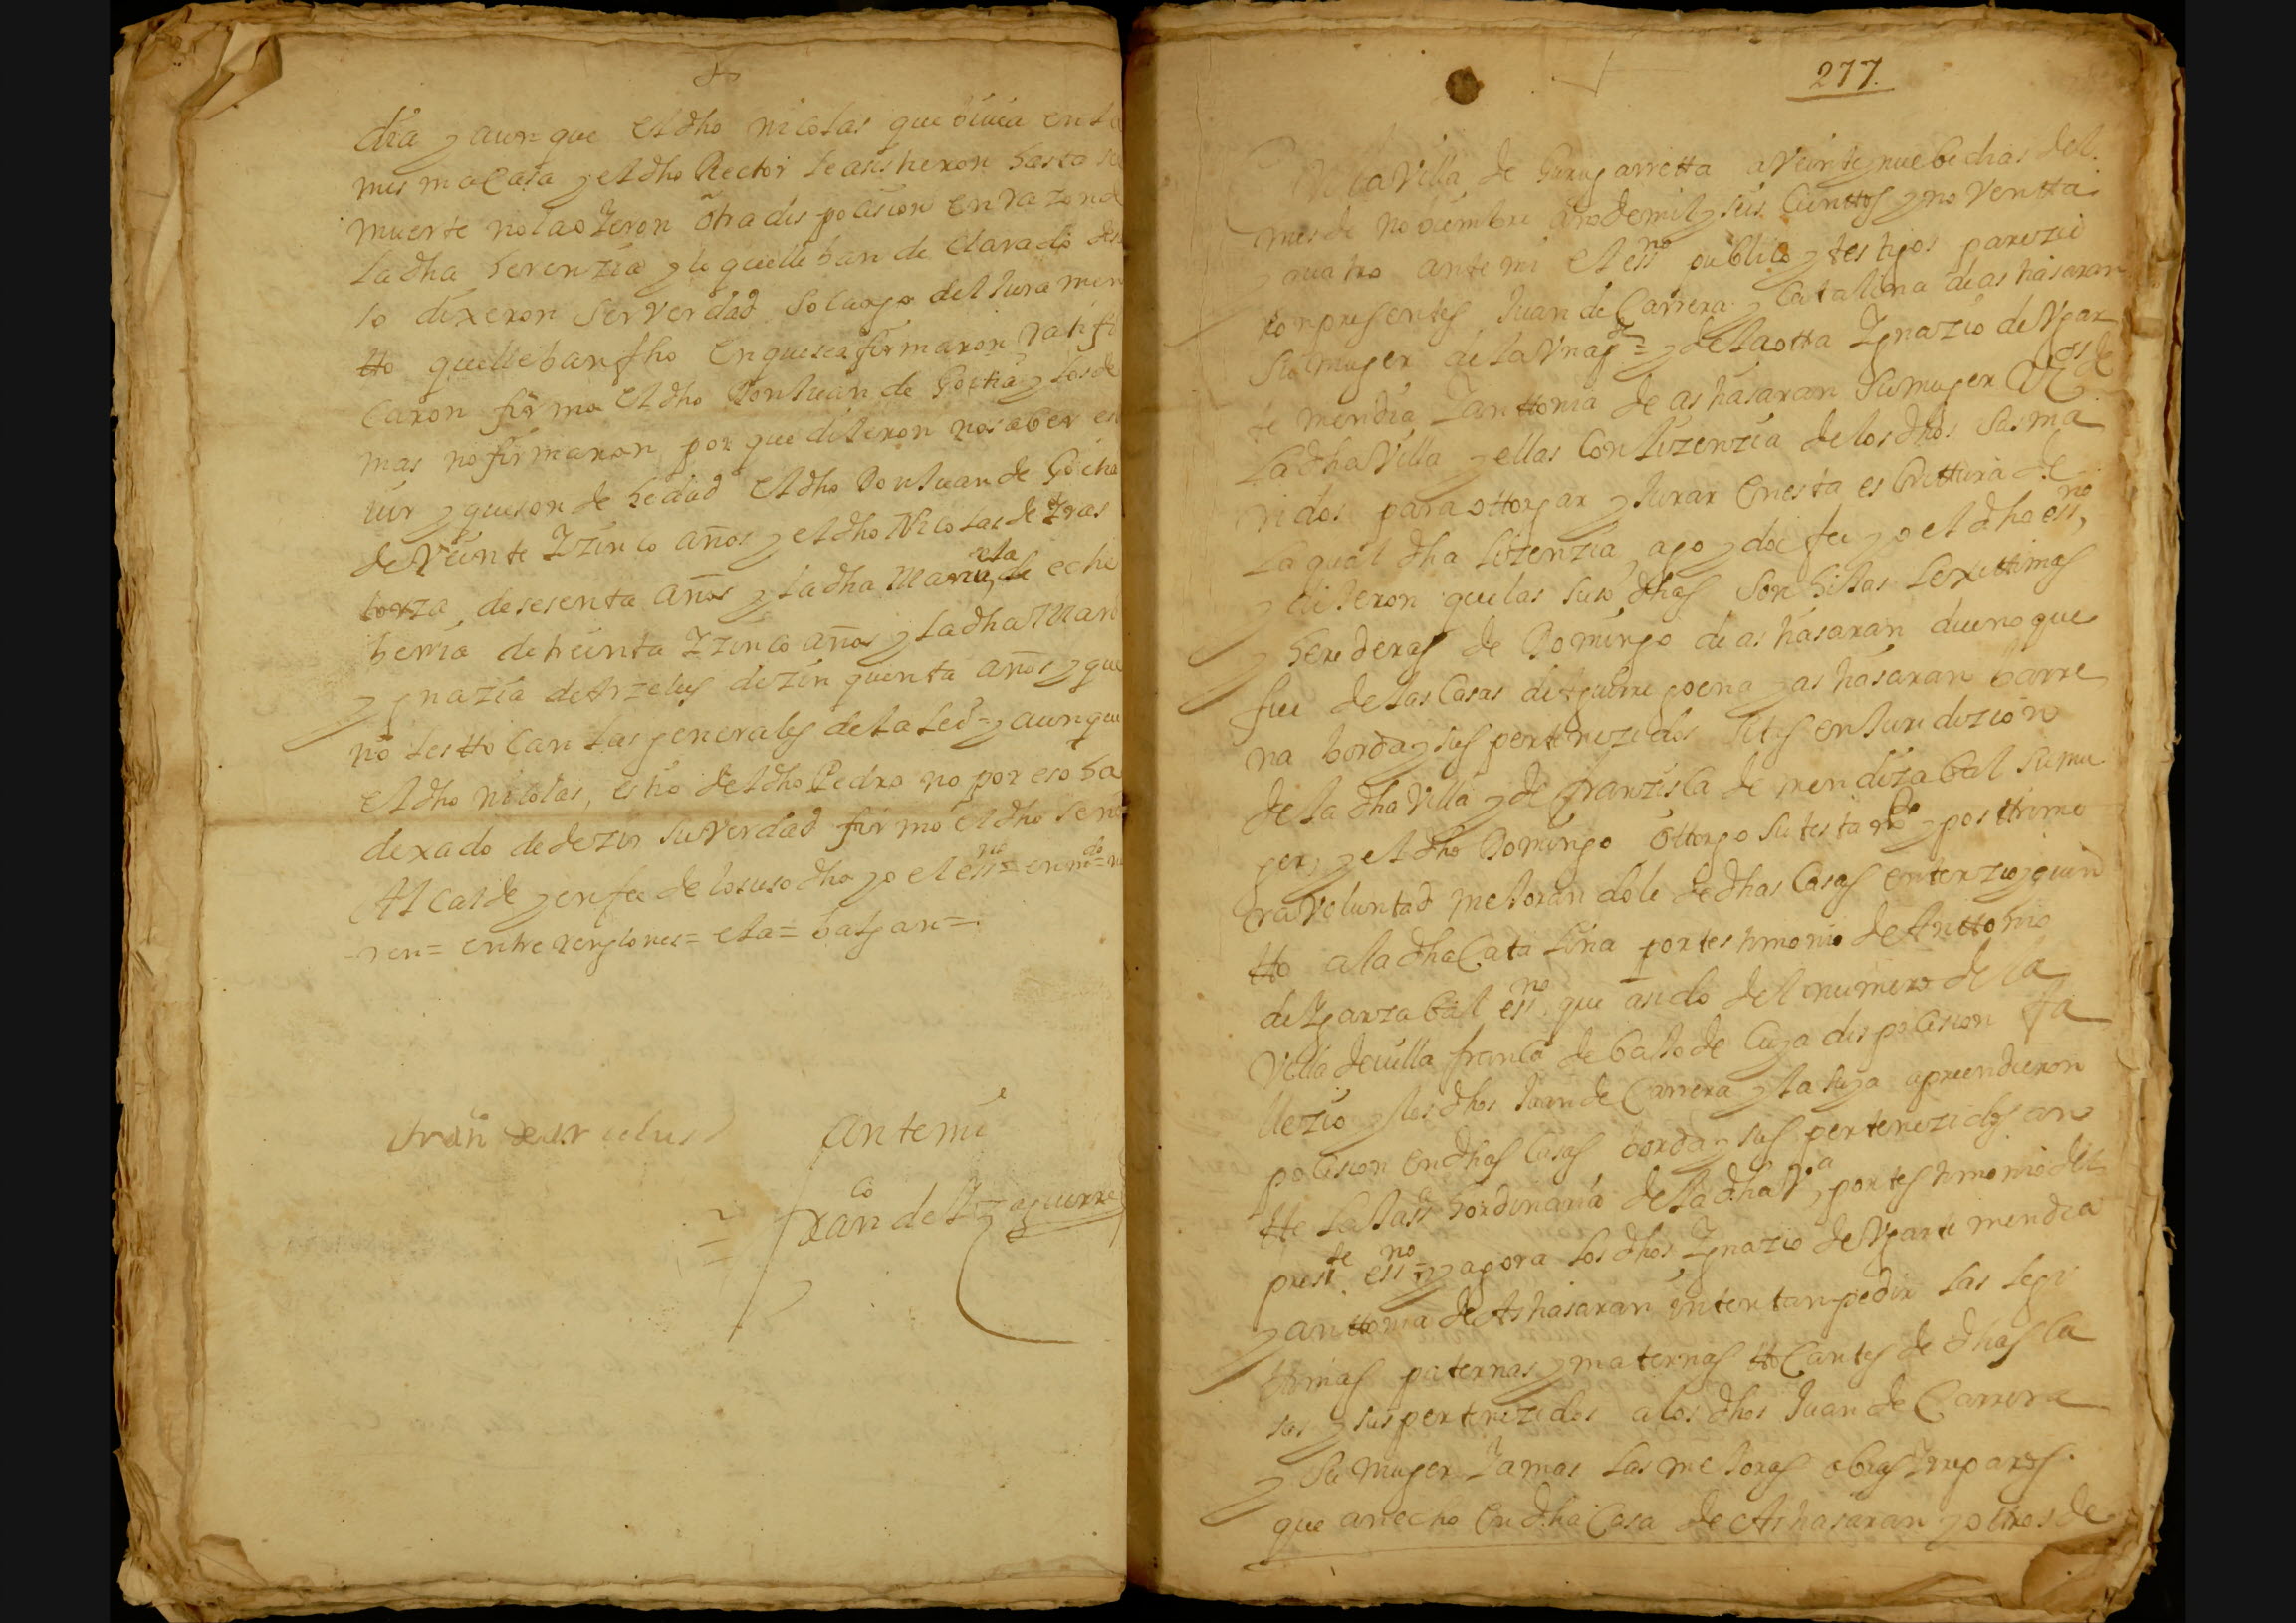 dia y aunque el dho nicolas que viuia en la
mesma casa y el dho Rector le asistieron hasta su
muerte no la oyeron otra disposision en razon de
la dha herenzia y lo que lleban de clarado des
so dixeron ser verdad so cargo del Juramen
tto que lleban fho en que se afirmaron ratifi
caron firmo el dho Don Juan de Goitia y los de
mas no firmaron por que dijeron no saber es
uir y que son de hedad el dho Don Juan de Goitia
de Veinte Izinco años y el dho Nicolas de Iras
torza de sesenta años y la dha Maria de eche
ela
berria de treinta Izinco años y la dha Mari
ygnazia de Arzelus de zinquenta años y que
no les ttocan las generales de la Lei = y aunque
el dho nicolas, es tio del dho Pedro no por eso ha
dexado de dezir su verdad firmo el dho señor
Alcalde y en fee de lo suso dho yo el essno = enmdo =
ren = entre renglones = ela = balgan =
Juan de arzelus
ante mi
Franco de Yzaguirre
277.
En la Villa de Gainza a Veinte y nuebe dias del
mes de nobiembre año de mil y seis cienttos y no Ventta
y quatro ante mi el essno publico y testigos parezie
ron presentes Juan de Carrera y Catalina de as
su muger de la Vna pte = y de la otta Ygnazio de Vgar
te mendia Y anttonia de as su muger Vezos de
la dha Villa y ellas con lizenzia de los dhos sus ma
ridos para ottorgar y Jurar en esta escrittura de
la qual dha lizenzia, y doi fee yo el dho essno,
y dijeron que las suso dhas son hijas lexittimas
y herederas de Domingo de as dueno que
fue de las casas de Aguirre goena y as barre
na borda y sus pertenezidos sitas en Jurisdizion
de la dha Villa y de franzisca de mendizabal su mu
ger, y el dho Domingo ottorgo su testamto y posttrime
ra voluntad mejorandole de dhas casas en terzio y quin
tto a la dha Catalina por testimonio de Anttonio
de Ygarzabal essno que a sido del numero de la
Villa de villa franca de bajo de cuya disposision fa
llezio y los dhos Juan de Carrera y la suya aprendieron
posision en dhas casas borda y sus pertenezidos an
tte la Justa hordinaria de la dha Va por testimonio del
preste essno = y agora los dhos Ygnazio de Vgarte mendia
y anttonia de As intentan pedir las legi
timas paternas y maternas ttocantes de dhas ca
sas y sus pertenezidos a los dhos Juan de Carrera
y su muger Y a mas las mejoras obras Y reparos
que an echo en dha casa de As y otros de